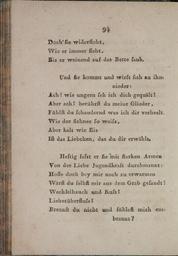 94
Doch sie widersteht,
Wie er immer fleht,
Bis er weinend auf das Bette sank.
Und sie kommt und wirft sich zu ihm
nieder:
Ach! wie ungern seh ich dich gequält!
Aber ach! berührst du meine Glieder,
Fühlst du schaudernd was ich dir verhehlt.
Wie der Schnee so weiß,
Aber kalt wie Eis
Ist das Liebchen, das du dir erwählt.
Heftig faßt er sie mit starken Armen
Von der Liebe Jugendkraft durchmannt:
Hoffe doch bey mir noch zu erwarmen
Wärst du selbst mir aus dem Grab gesandt!
Wechselhauch und Kuß!
Liebesüberfluß!
Brennst du nicht und fühlest mich ent-
brannt?